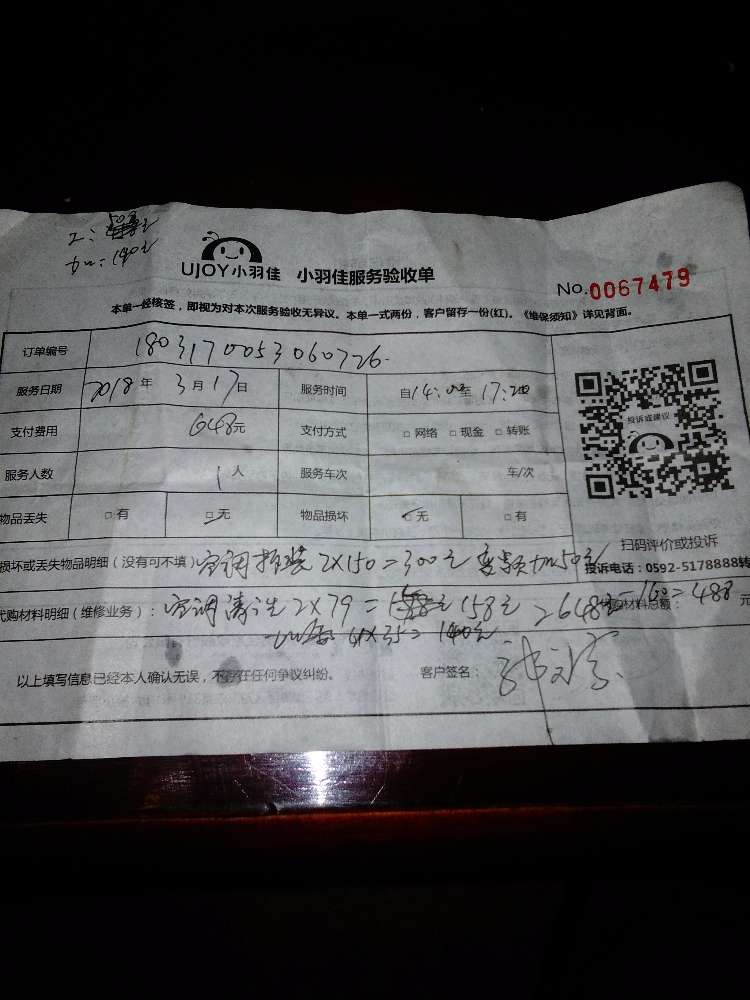 50元
加:140元
UJOY小羽佳 小羽佳服务验收单
No.0067479
本单一经核签，即视为对本次服务验收无异议。本单一式两份，客户留存一份(红)。《维保须知》详见背面。
订单编号 1803170053060726.
服务日期 2018年 3月17日 服务时间 自14: 至17:20
支付费用 648元 支付方式 □网络 □现金 □转账
服务人数 1人 服务车次 车/次
投诉或建议
物品丢失 □有 □无 物品损坏 □无 □有
扫码评价或投诉
损坏或丢失物品明细（没有可不填） 空调拆装2×150=300元 变频加50元
投诉电话：0592-5178888转
代购材料明细（维修业务）： 空调清洗2×79= 158元 648 -160=488 购材料总额： 元
4×35=140元
以上填写信息已经本人确认无误，不存在任何争议纠纷。 客户签名：